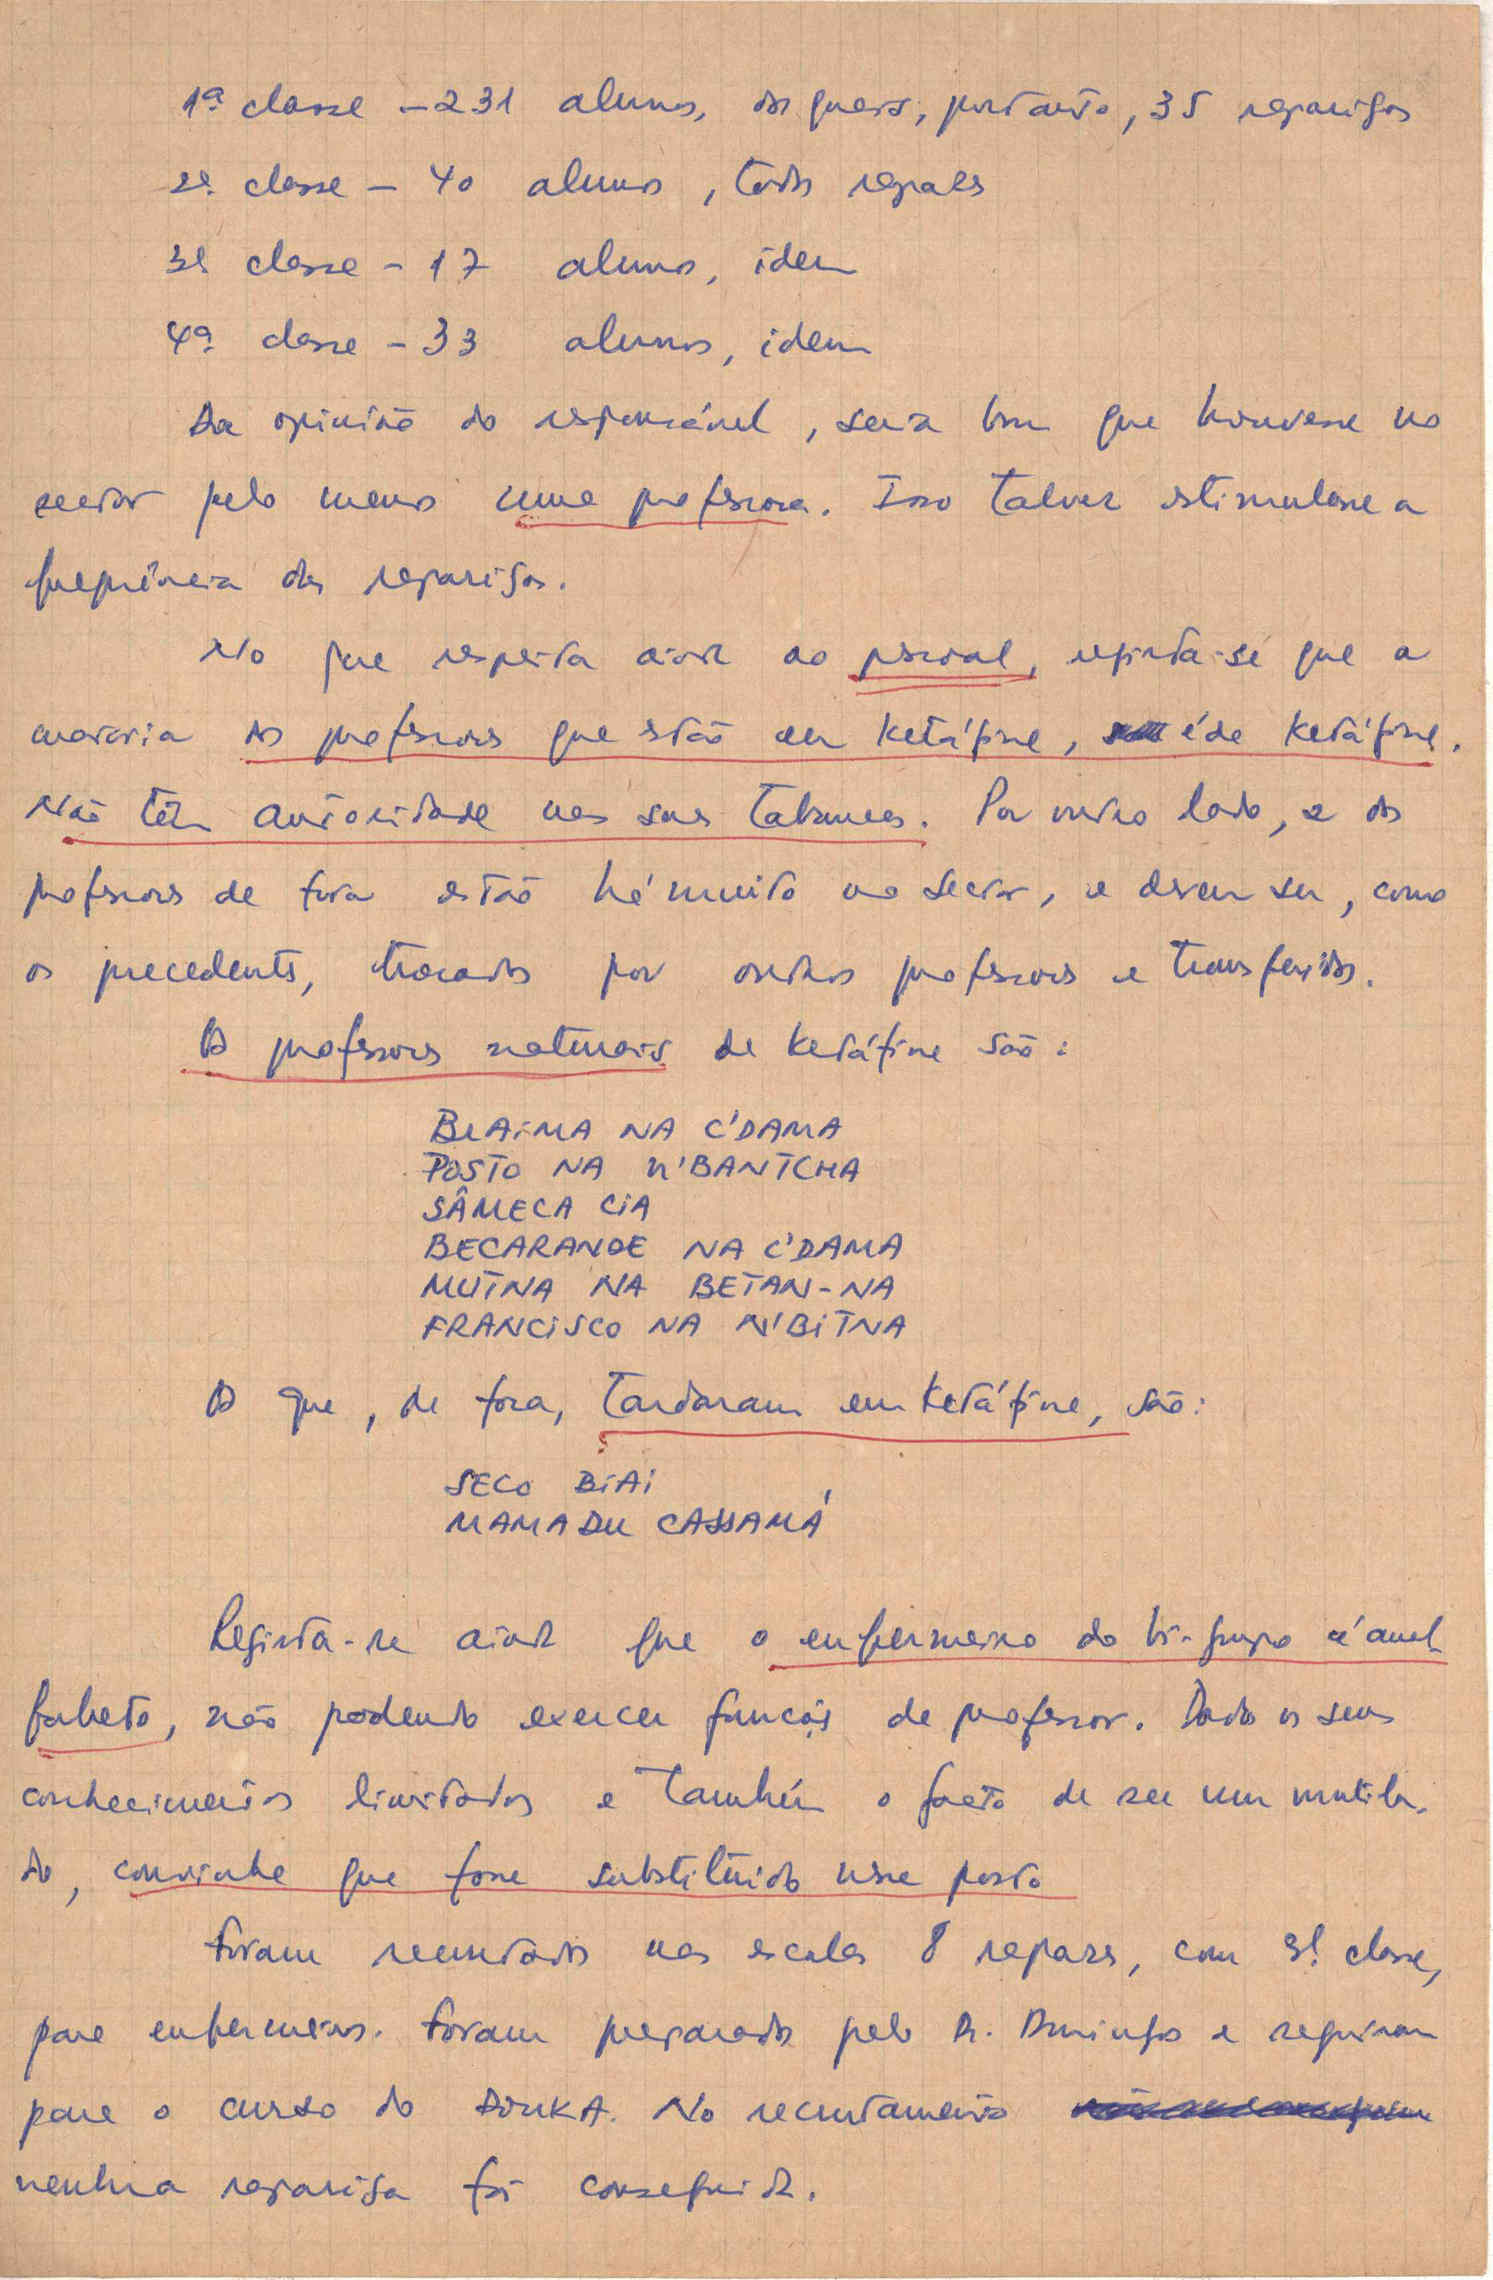 1ª classe - 231 alunos, dos quais, portanto, 35 raparigas
2ª classe - 40 alunos, todos rapazes
3ª classe - 17 alunos, idem
4ª classe - 33 alunos, idem
Da opinião do responsável, seria bom que houvesse no
sector pelo menos uma professora. Isso talvez estimulasse a
frequência das raparigas.
No que respeita ainda ao pessoal, regista-se que a
maioria dos professores que estão em Ketáfine, é de Ketáfine.
Não têm autoridade nas suas tabancas. Por outro lado, 2 dos
professores de fora estão há muito no sector, e devem ser, como
os precedentes, trocados por outros professores e transferidos.
Os professores naturais de Ketáfine são:
BLAIMA NA C'DAMA
POSTO NA N'BANTCHA
SÂMECA CIA
BECARANDE NA C'DAMA
MUTNA NA BETAN-NA
FRANCISCO NA N'BITNA
Os que, de fora, tardaram em Ketáfine, são:
SECO BIAI
MAMADU CASSAMÁ
Regista-se ainda que o enfermeiro do bi-grupo é anal
fabeto, não podendo exercer funções de professor. Dado os seus
conhecimentos limitados e também o facto de ser um mutila-
do, convinha que fosse substituído nesse posto
Foram recrutados nas escolas 8 rapazes, com 3ª classe,
para enfermeiros. Foram preparados pelo Dr. Domingos e seguiram
para o curso do DONKA. No recrutamento
nenhuma rapariga foi conseguida.